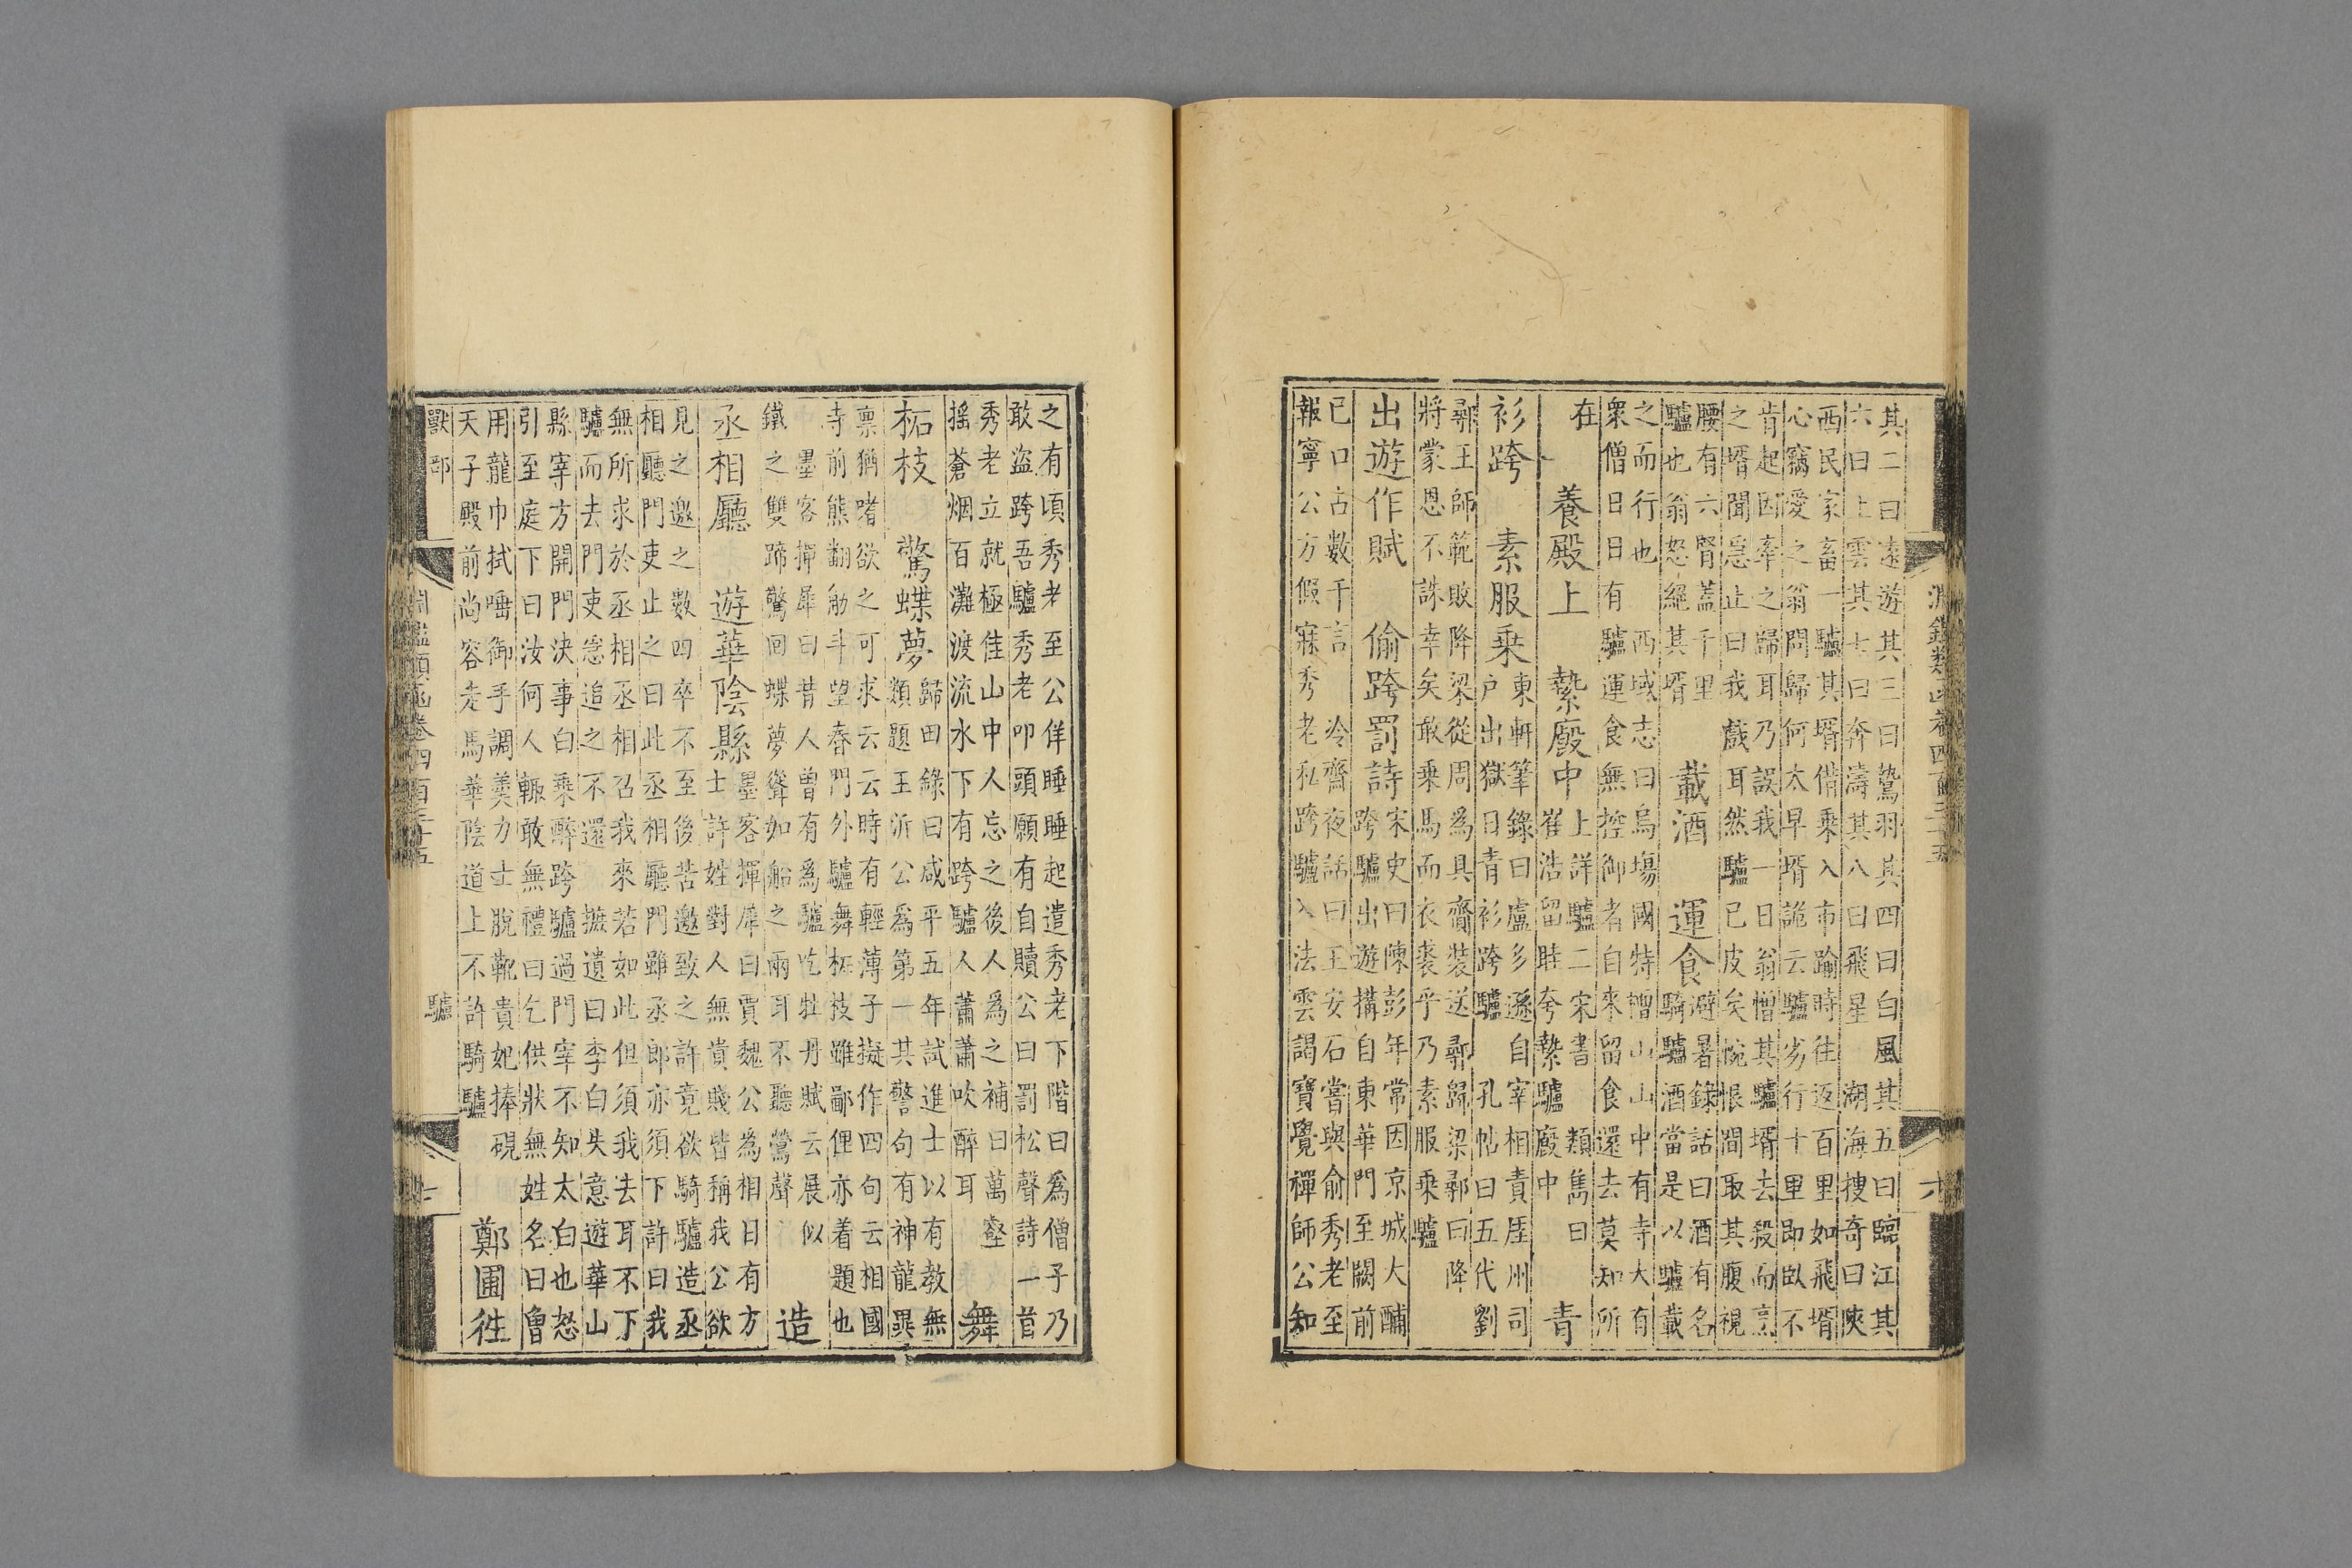 淵鑑類函卷四百三十五 六
其二曰遠遊其三曰驚羽其四曰白風其五曰臨江其
六曰上雲其七曰奔濤其八曰飛星 湖海搜奇曰陝
西民家畜一驢其壻借乘入市踰時往返百里如飛壻
心竊愛之翁問歸何太早壻詭云驢劣行十里即臥不
肯起因牽之歸耳乃誤我一日翁憎其驢壻去殺而烹
之壻聞急止曰我戲耳然驢已皮矣惋恨間取其腹視
腰有六腎蓋千里
驢也翁怒絕其壻
載酒 運食
避暑錄話曰酒有名
騎驢酒當是以驢載
之而行也 西域志曰烏塲國特憎山山中有寺大有
衆僧日日有驢運食無控御者自來留食還去莫知所
在
養殿上 縶廐中
上詳驢二宋書 類雋曰
崔浩留眭夸縶驢廐中
青
衫跨 素服乘
東軒筆錄曰盧多遜自宰相責厓州司
戶出獄日青衫跨驢 孔帖曰五代劉
鄩王師範敗降梁從周為具齎裝送鄩歸梁鄩曰降
將蒙恩不誅幸矣敢乘馬而衣裘乎乃素服乘驢
出遊作賦 偷跨罰詩
宋史曰陳彭年常因京城大酺
跨驢出遊搆自東華門至闕前
已口占數千言 冷齋夜話曰王安石嘗與俞秀老至
報寧公方假寐秀老私跨驢入法雲謁寶覺禪師公知
之有頃秀老至公佯睡睡起遣秀老下階曰為僧子乃
敢盜跨吾驢秀老叩頭願有自贖公曰罰松聲詩一首
秀老立就極佳山中人忘之後人為之補曰萬壑
搖蒼烟百灘渡流水下有跨驢人蕭蕭吹醉耳
舞
柘枝 驚蝶夢
歸田錄曰咸平五年試進士以有教無
類題王沂公為第一其警句有神龍異
稟猶嗜欲之可求云云時有輕薄子擬作四句云相國
寺前熊翻觔斗望春門外驢舞柘枝雖鄙俚亦着題也
墨客揮犀曰昔人曾有為驢吃牡丹賦云展似
鐵之雙蹄驚回蝶夢聳如船之兩耳不聽鶯聲
造
丞相廳 遊華陰縣
墨客揮犀曰賈魏公為相日有方
士許姓對人無貴賤皆稱我公欲
見之邀之數四卒不至後苦邀致之許竟欲騎驢造丞
相廳門吏止之曰此丞相廳門雖丞郎亦須下許曰我
無所求於丞相丞相召我來若如此但須我去耳不下
驢而去門吏急追之不還 摭遺曰李白失意遊華山
縣宰方開門決事白乘醉跨驢過門宰不知太白也怒
引至庭下曰汝何人輒敢無禮曰乞供狀無姓名曰曾
用龍巾拭唾御手調羹力士脫靴貴妃捧硯
天子殿前尚容走馬華陰道上不許騎驢
鄭圃徃
獸部 驢
淵鑑類函卷四百三十五